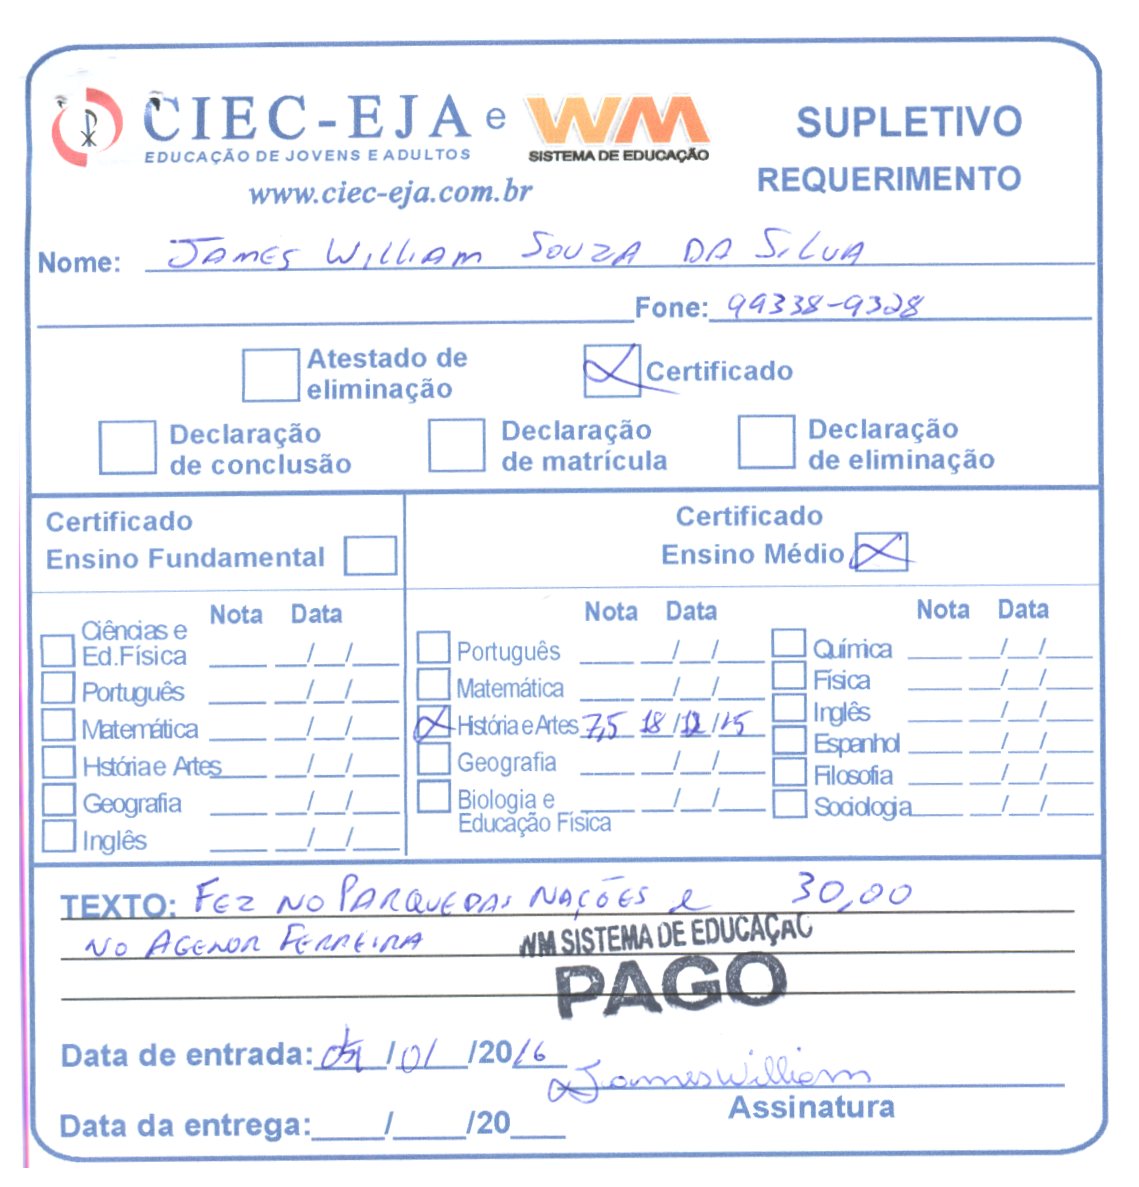 CIEC-EJA e WM SUPLETIVO
EDUCAÇÃO DE JOVENS E ADULTOS SISTEMA DE EDUCAÇÃO
www.ciec-eja.com.br REQUERIMENTO
Nome: James William Souza da Silva
Fone: 99338-9328
Atestado de eliminação
Certificado
Declaração de conclusão
Declaração de matrícula
Declaração de eliminação
Certificado
Ensino Fundamental
Nota Data
Ciências e
Ed.Física / /
Português / /
Matemática / /
História e Artes / /
Geografia / /
Inglês / /
Certificado
Ensino Médio
Nota Data
Português / /
Matemática / /
História e Artes 7,5 18/12/15
Geografia / /
Biologia e / /
Educação Física
Nota Data
Química / /
Física / /
Inglês / /
Espanhol / /
Filosofia / /
Sociologia / /
TEXTO: Fez no Parque das Nações e 30,00
no Agenor Ferreira
WM SISTEMA DE EDUCAÇÃO
PAGO
Data de entrada: /01/2016
James William
Assinatura
Data da entrega: / /20